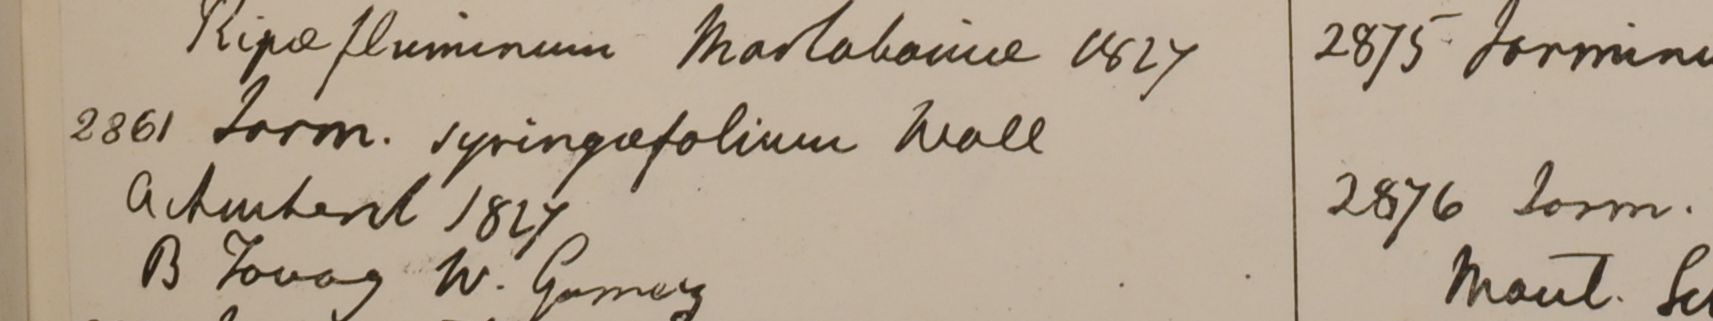 Ripæ fluminum Martabaniæ 1827
2861 Jasm. syringæfolium Wall
A Amherst 1827
B Tavoy W. Gomez
2875 Jasminu
2876 Jasm.
Mont.